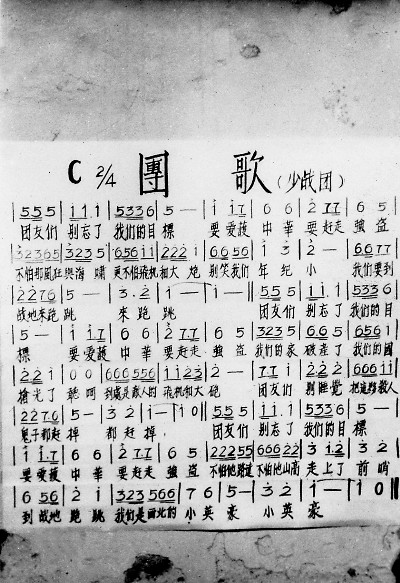 C 2/4 團 歌 (少战团)
555 | i i. i | 5336 | 5 — | i i7 | 6 6 | 2 77 | 6 5
团友们 别忘了 我们的目標 要爱護 中華 要赶走 強盗
32365 | 3235 | 656ii | 222i | 6656 | i 3 | 2 — | 6677
不怕那風狂與海嘯 更不怕飛机和大炮 别笑我们 年纪小 我们要到
2276 | 5 — | 3. 2 | i — | i — || 555 | i i. i | 5336
战地来跑跳 来跑跳 团友们 别忘了 我们的目
5 — | i i76 | 6 6 | 2 77 | 6 5 | 323 5 | 66 5 | 656 i
標 要爱護 中華 要赶走 強盗 我们的家 破產了 我们的國
22 i | 0 0 | 666556 | ii23 | 2 — | 77 i | 222 2 | 666ii
搶光了 到處是敵人的 飛机和大砲 团友们 别睡觉 把這些敵人
2276 | 5 — | 3 2 | i — | i 0 || 555 | i i. i | 5336 | 5 —
鬼子都赶掉 都赶掉 团友们 别忘了 我们的目標
i i7 | 6 6 | 2 77 | 6 5 | 22255 | 66622 | 3 i. 2 | 3 2
要爱護 中華 要赶走 強盗 不怕他路遠 不怕他山高 走上了 前哨
6 56 | 2 i | 323566 | 7 6 | 5 — | 3 2 | i — | i 0 ||
到战地 跑跳 我们是西北的 小英豪 小英豪